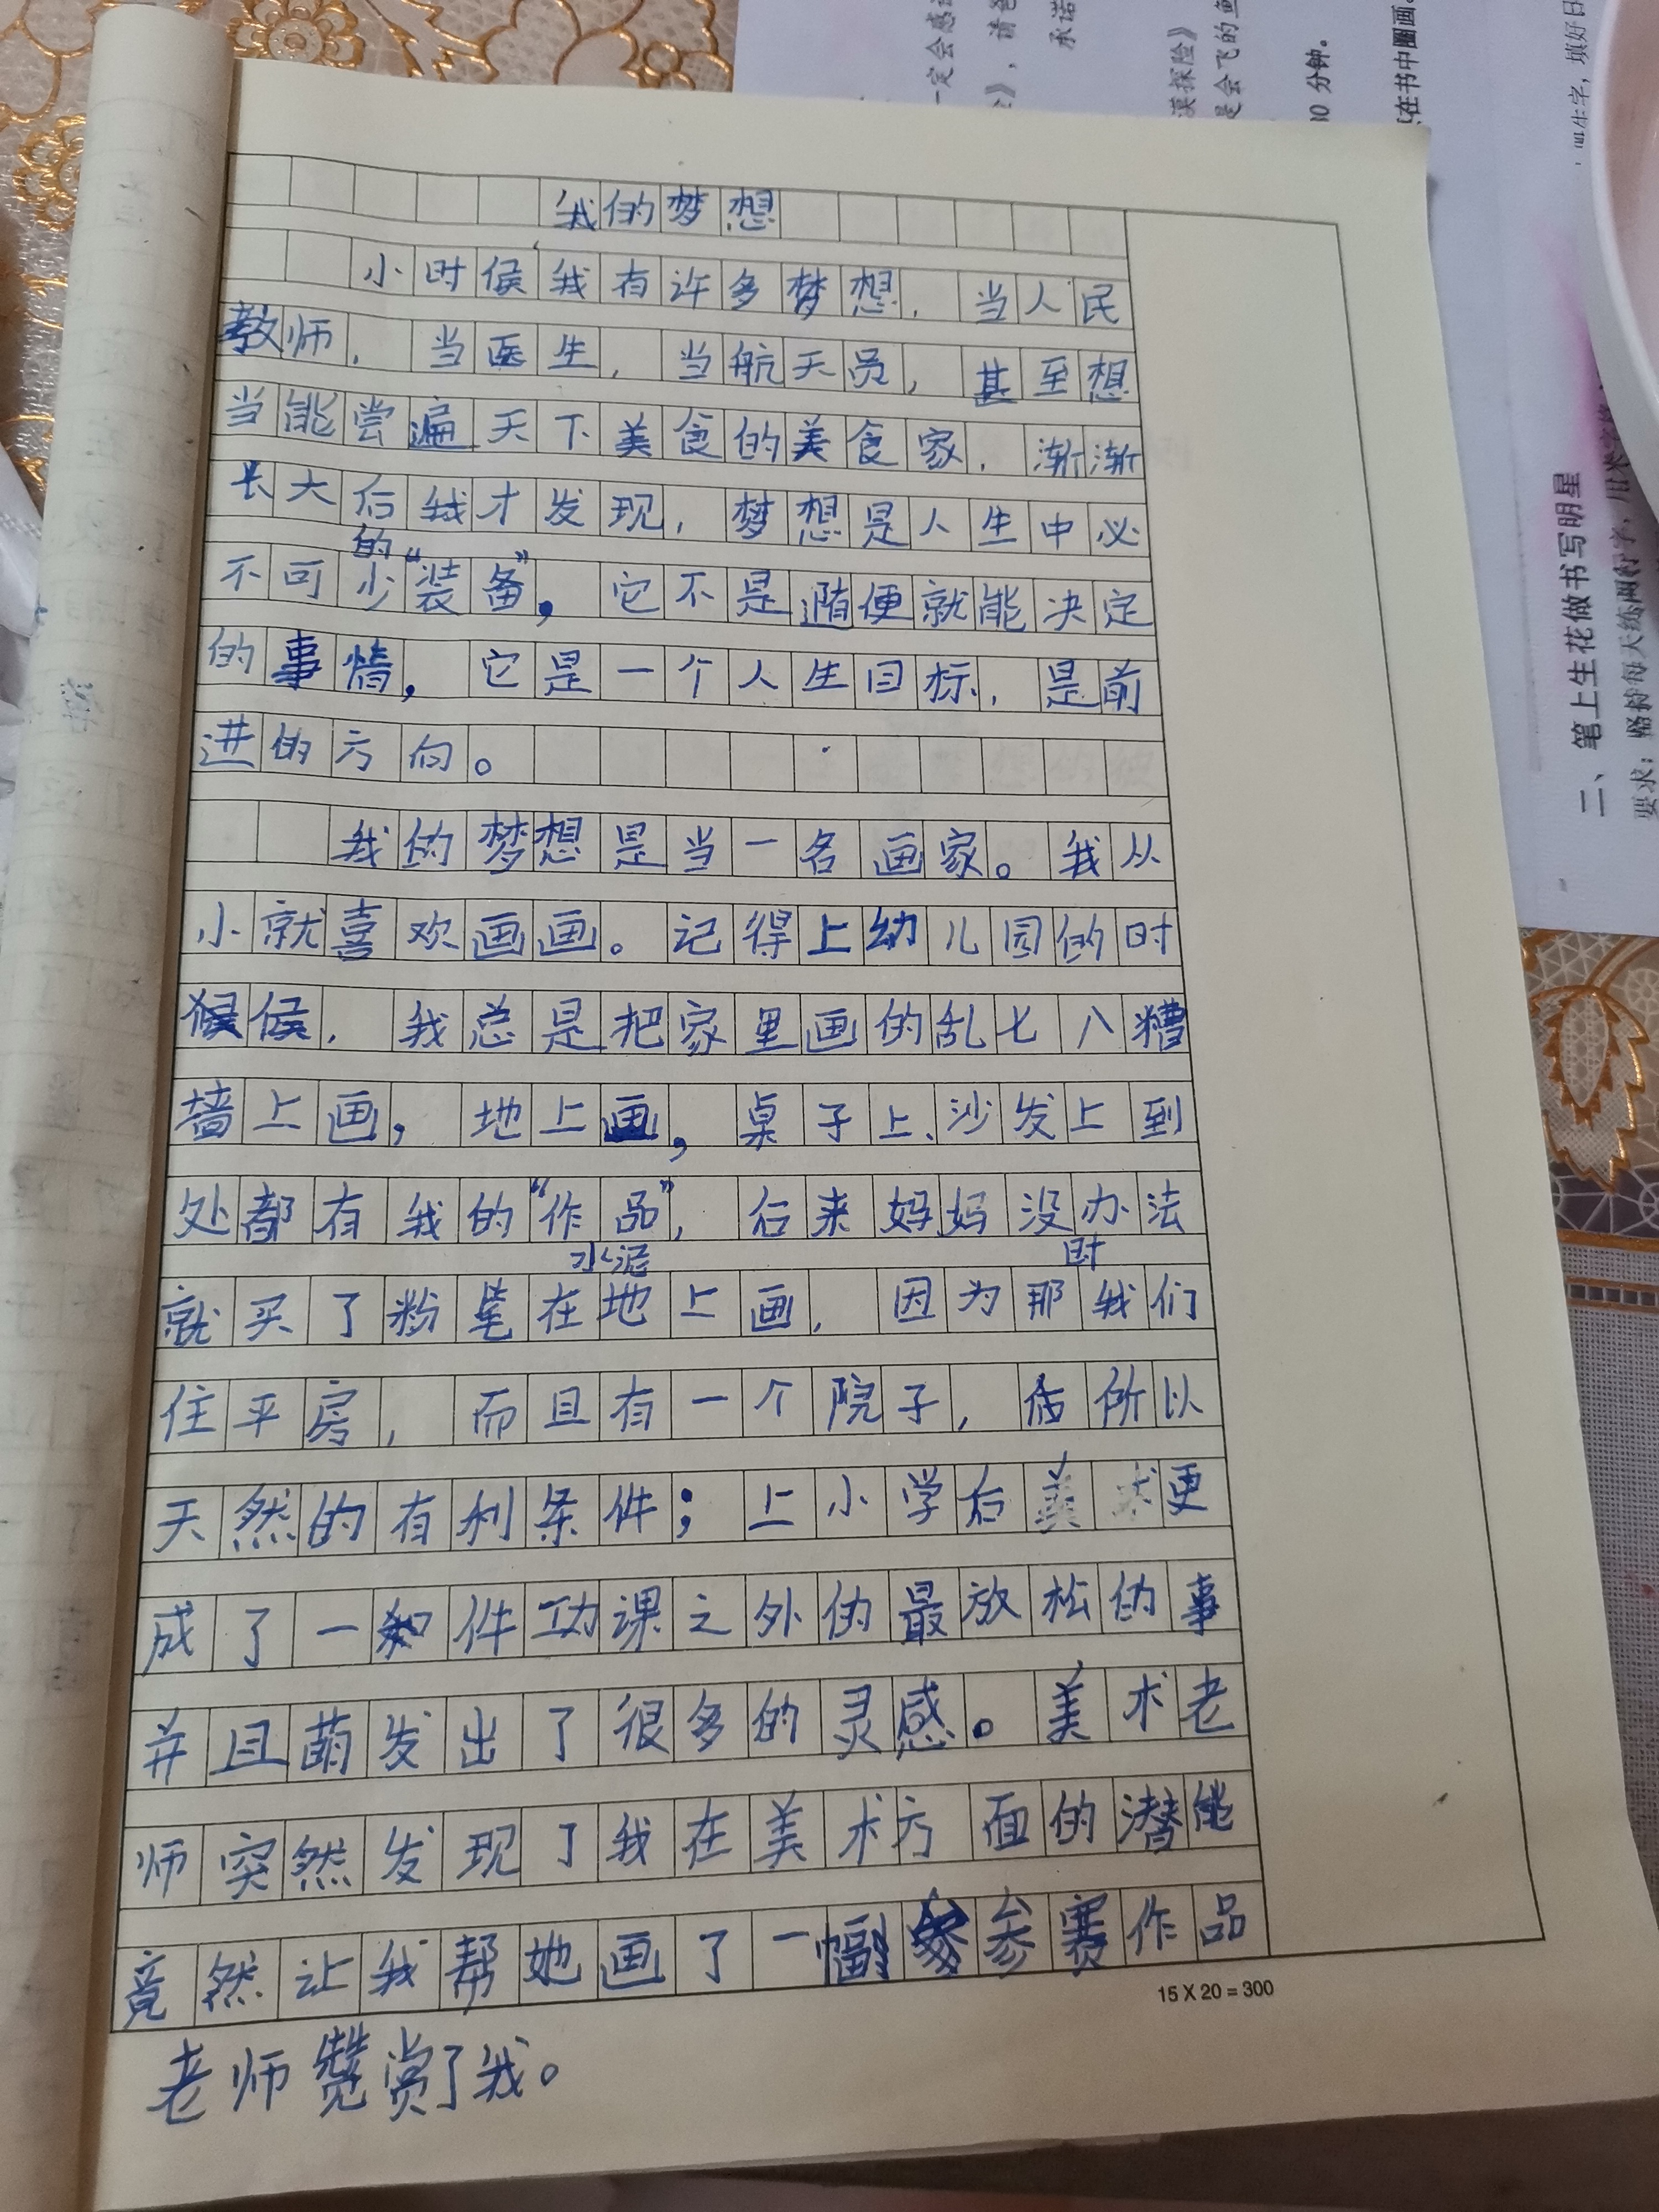 我的梦想
小时候我有许多梦想，当人民
教师，当医生，当航天员，甚至想
当能尝遍天下美食的美食家，渐渐
长大后我才发现，梦想是人生中必
不可少的“装备”，它不是随便就能决定
的事情，它是一个人生目标，是前
进的方向。
我的梦想是当一名画家。我从
小就喜欢画画。记得上幼儿园的时
候候，我总是把家里画的乱七八糟
墙上画，地上画，桌子上、沙发上到
处都有我的“作品”，后来妈妈没办法
就买了粉笔在水泥地上画，因为那时我们
住平房，而且有一个院子，占所以
天然的有利条件；上小学后美术更
成了一件功课之外的最放松的事
并且萌发出了很多的灵感。美术老
师突然发现了我在美术方面的潜能
竟然让我帮她画了一幅参赛作品
老师赞赏了我。
15 X 20 = 300
一定会感
》，请爸
承诺
漠探险》
是会飞的鱼
30 分钟。
在书中圈画。
生字，填好日
二、笔上生花做书写明星
要求：坚持每天练两行字，用米字格